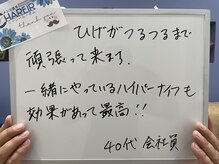 CHARMER
thank
ひげがつるつるまで
頑張って来ます。
一緒にやっているハイパーナイフも
効果があって最高!!
40代 会社員